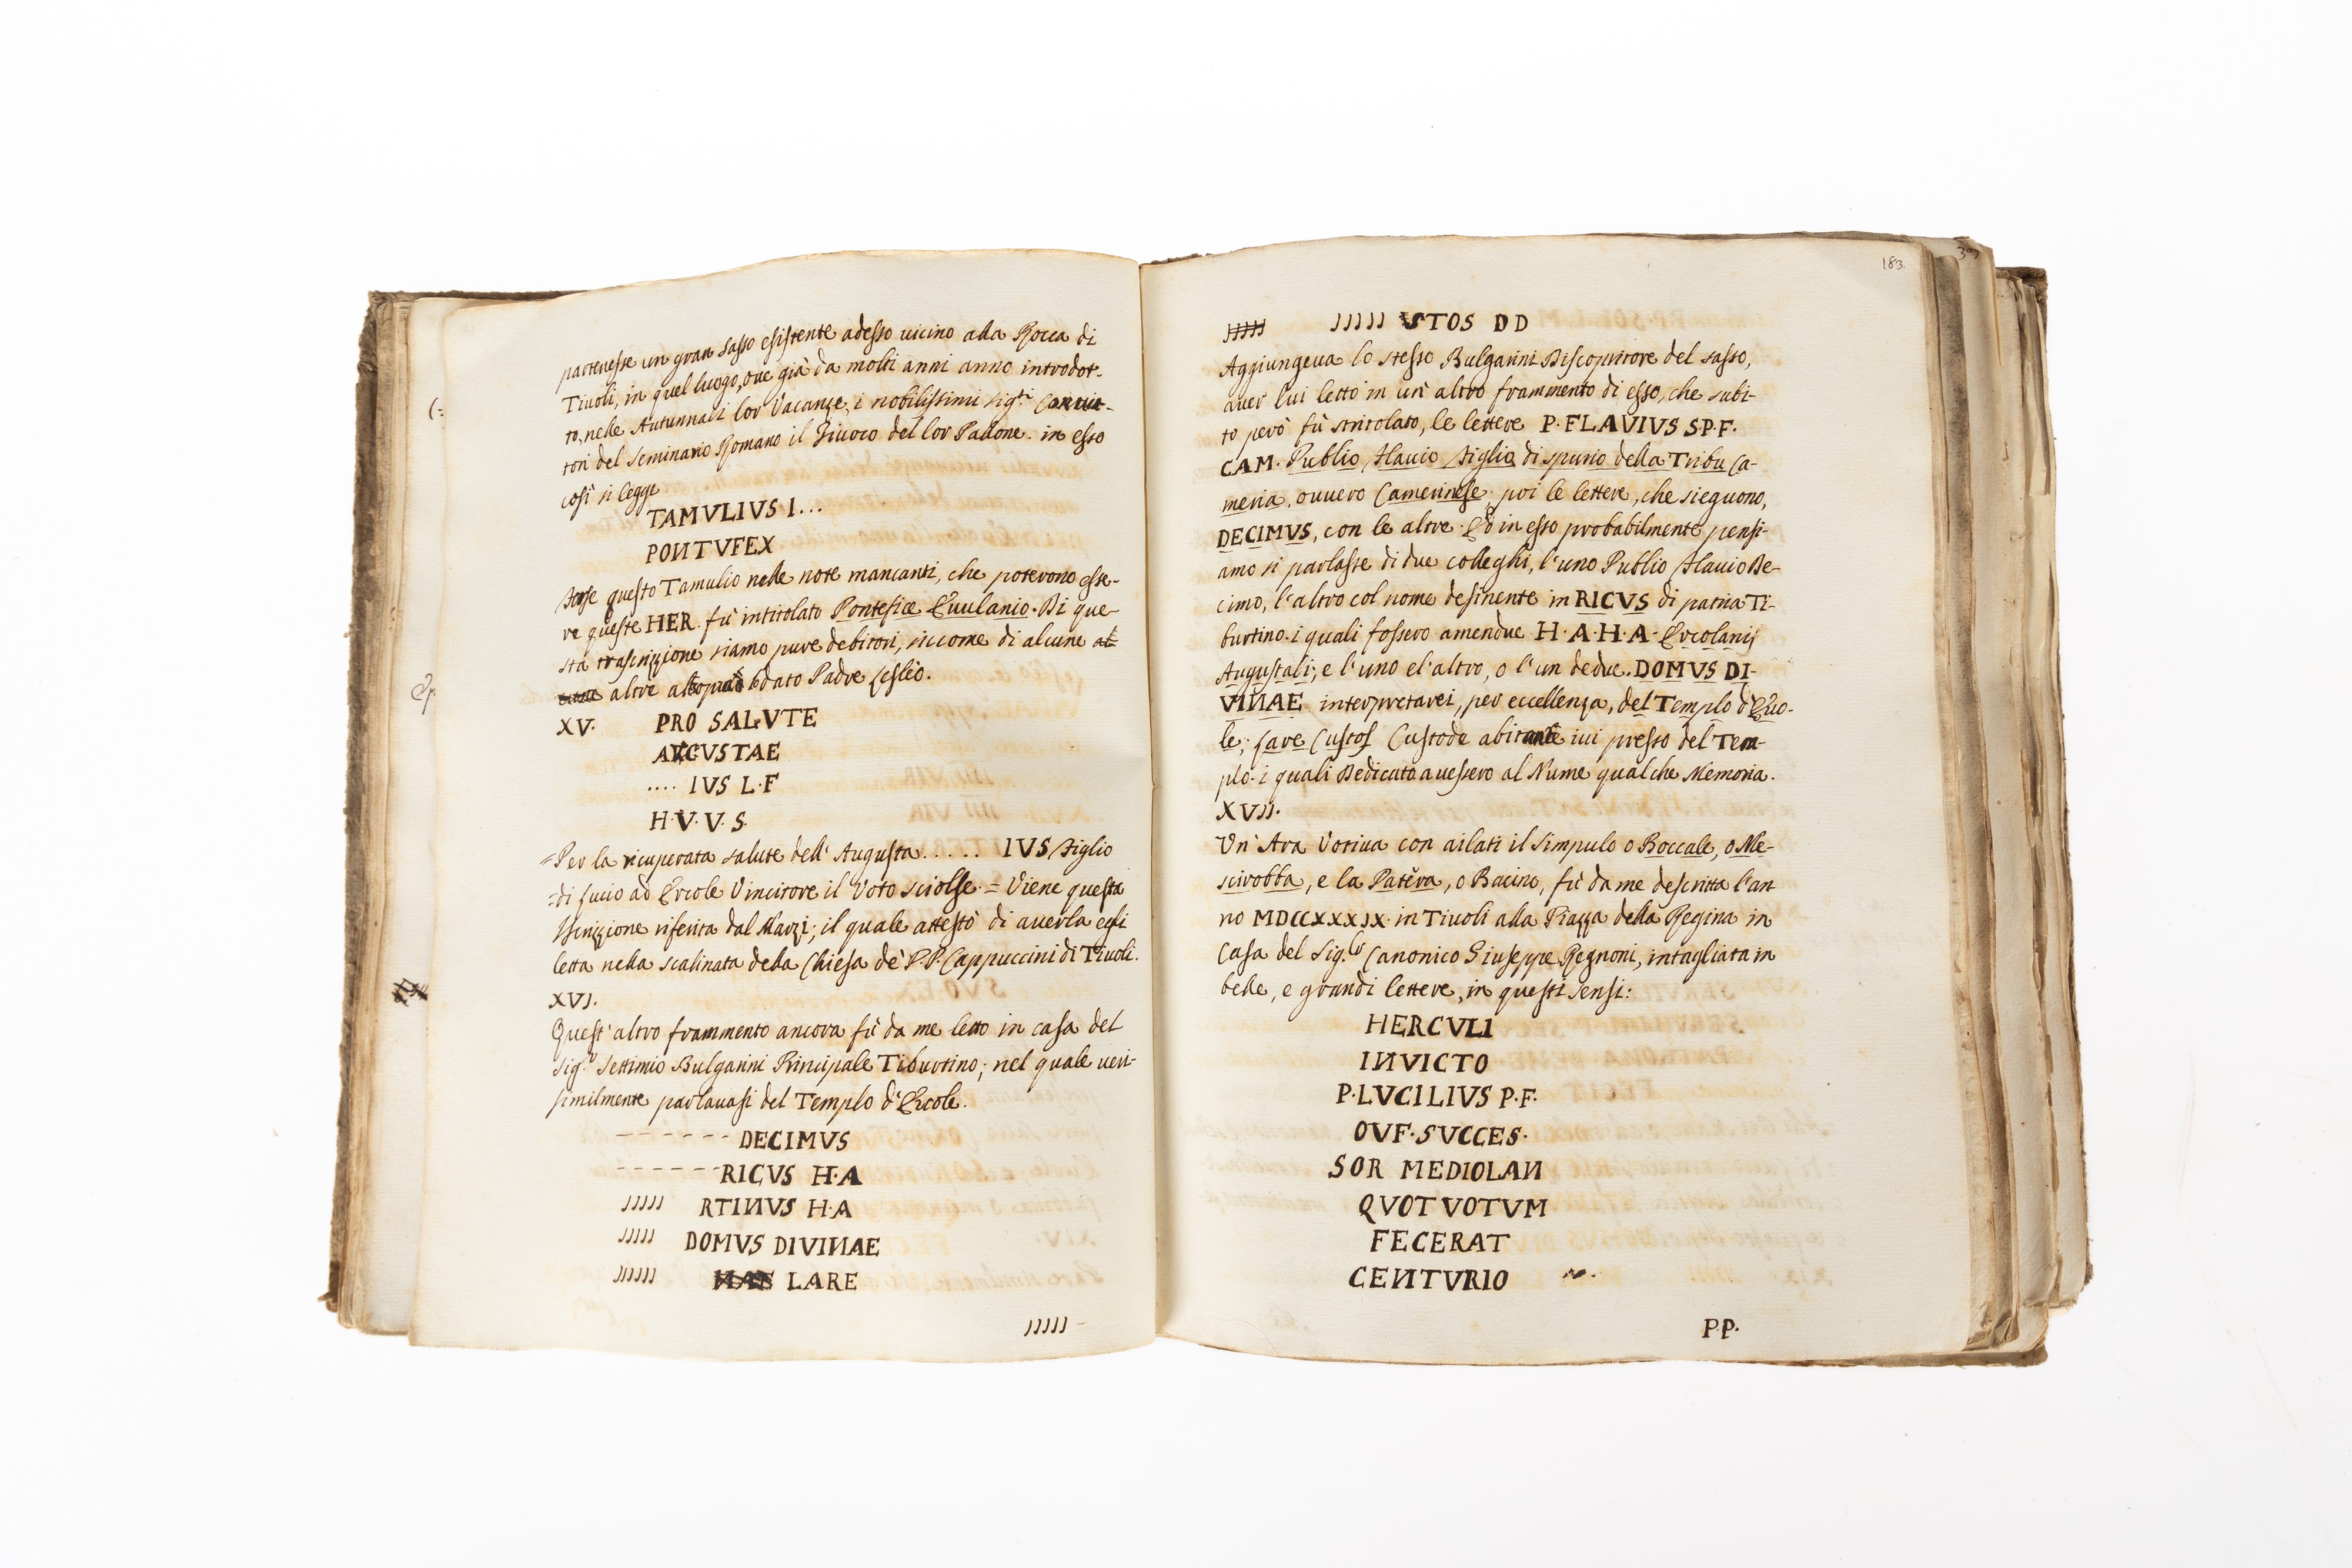 partenesse un gran sasso esistente adesso vicino alla Rocca di
Tivoli, in quel luogo, ove già da molti anni anno introdot-
to, nelle Autunnali lor Vacanze, i nobilissimi Sig.ri Convit-
tori del Seminario Romano il Giuoco del lor Pallone. in esso
così si legge
TAMVLIVS I...
PONTVFEX
Forse questo Tamulio nelle note mancanti, che poterono esse-
re queste HER. fù intitolato Pontefice Erculanio. Di que-
sta trascrizione siamo pure debitori, siccome di alcune al-
altre al lodato Padre Ceslio.
XV. PRO SALVTE
AVGVSTAE
.... IVS L·F
H·V·V·S·
=Per la ricuperata salute dell' Augusta ..... IVS Figlio
=di Lucio ad Ercole Vincitore il Voto sciolse.= Viene questa
Iscrizione riferita dal Marzi; il quale attestò di averla egli
letta nella scalinata della Chiesa de' P.P. Cappuccini di Tivoli.
XVI.
Quest' altro frammento ancora fù da me letto in casa del
Sig.r Settimio Bulgarini Principale Tiburtino; nel quale veri-
similmente parlavasi del Templo d'Ercole.
- - - - - - DECIMVS
- - - - - - RICVS H·A
IIIII RTINVS H·A
IIIII DOMVS DIVINAE
IIIIII LARE
IIIII -
183.
IIIII IIIII VSTOS DD
Aggiungeva lo stesso Bulgarini Discopritore del sasso,
aver lui letto in un' altro frammento di esso, che subi-
to però fù stritolato, le lettere P·FLAVIVS S.P.F.
CAM. Publio Flavio Figlio di Spurio della Tribu Ca-
meria, ovvero Camerinese. poi le lettere, che sieguono,
DECIMVS, con le altre. Ed in esso probabilmente pensi-
amo si parlasse di due colleghi, l'uno Publio Flavio De-
cimo, l'altro col nome desinente in RICVS di patria Ti-
burtino. i quali fossero amendue H·A·H·A· Ercolanij
Augustali; e l'uno e l'altro, o l'un de due. DOMVS DI-
VINAE interpretarei, per eccellenza, del Templo d'Erco-
le; Lare Custos Custode abitante ivi presso del Tem-
plo. i quali Dedicato avessero al Nume qualche Memoria.
XVII.
Un' Ara Votiva con ai lati il Simpulo o Boccale, o Me-
scirobba, e la Patera, o Bacino, fù da me descritta l'an
no MDCCXXXIX. in Tivoli alla Piazza della Regina in
Casa del Sig.r Canonico Giuseppe Regnoni, intagliata in
belle, e grandi lettere, in questi sensi:
HERCVLI
INVICTO
P·LVCILIVS P·F·
OVF·SVCCES·
SOR MEDIOLAN
QVOT VOTVM
FECERAT
CENTVRIO
P.P.